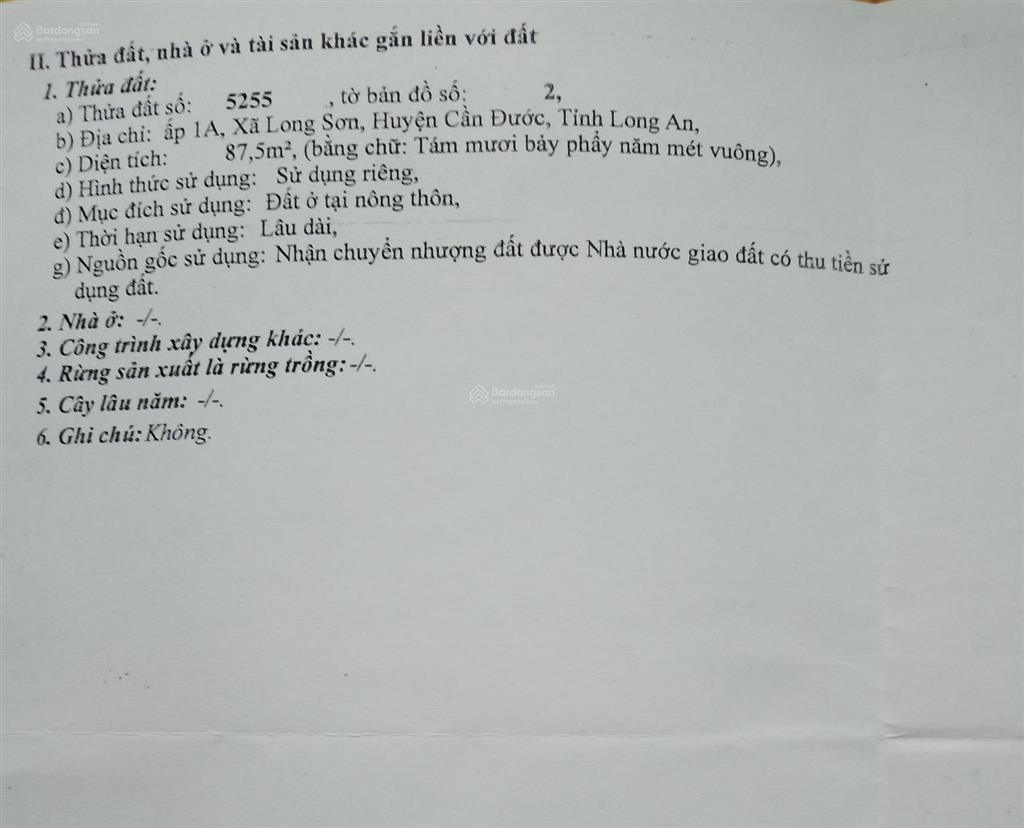 Batdongsan
II. Thửa đất, nhà ở và tài sản khác gắn liền với đất
1. Thửa đất:
a) Thửa đất số: 5255 , tờ bản đồ số: 2,
b) Địa chỉ: ấp 1A, Xã Long Sơn, Huyện Cần Đước, Tỉnh Long An,
c) Diện tích: 87,5m², (bằng chữ: Tám mươi bảy phẩy năm mét vuông),
d) Hình thức sử dụng: Sử dụng riêng,
đ) Mục đích sử dụng: Đất ở tại nông thôn,
e) Thời hạn sử dụng: Lâu dài,
g) Nguồn gốc sử dụng: Nhận chuyển nhượng đất được Nhà nước giao đất có thu tiền sử
dụng đất.
2. Nhà ở: -/-.
3. Công trình xây dựng khác: -/-.
4. Rừng sản xuất là rừng trồng: -/-.
Batdongsan
5. Cây lâu năm: -/-.
6. Ghi chú: Không.